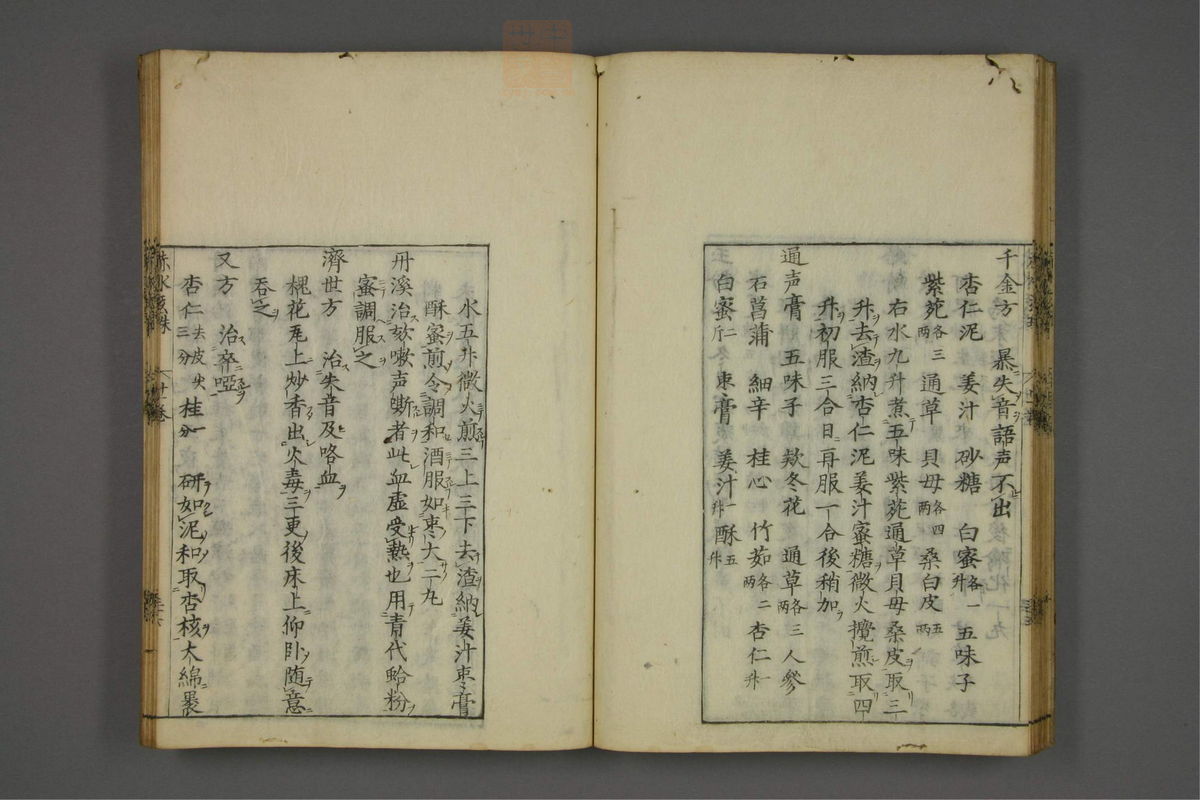 千金方 暴失音語声不出
杏仁泥 姜汁 砂糖 白蜜各一升 五味子
紫菀各三両 通草 貝母各四両 桑白皮五両
右水九升煮五味紫菀通草貝母桑皮取三
升去渣納杏仁泥姜汁蜜糖微火攪煎取四
升初服三合日再服一合後稍加
通声膏 五味子 欵冬花 通草各三両 人參
石菖蒲 細辛 桂心 竹茹各二両 杏仁一升
白蜜二斤 棗膏 姜汁一升 酥五升
水五升微火煎三上三下去渣納姜汁棗膏
酥蜜煎令調和酒服如棗大二丸
丹溪治欬嗽声嘶者此血虚受熱也用青代蛤粉
蜜調服之
濟世方 治失音及咯血
槐花瓦上炒香出火毒三更後床上仰卧随意
吞之
又方 治卒啞
杏仁三分去皮尖 桂一分 研如泥和取杏核大綿裹
赤水玄珠